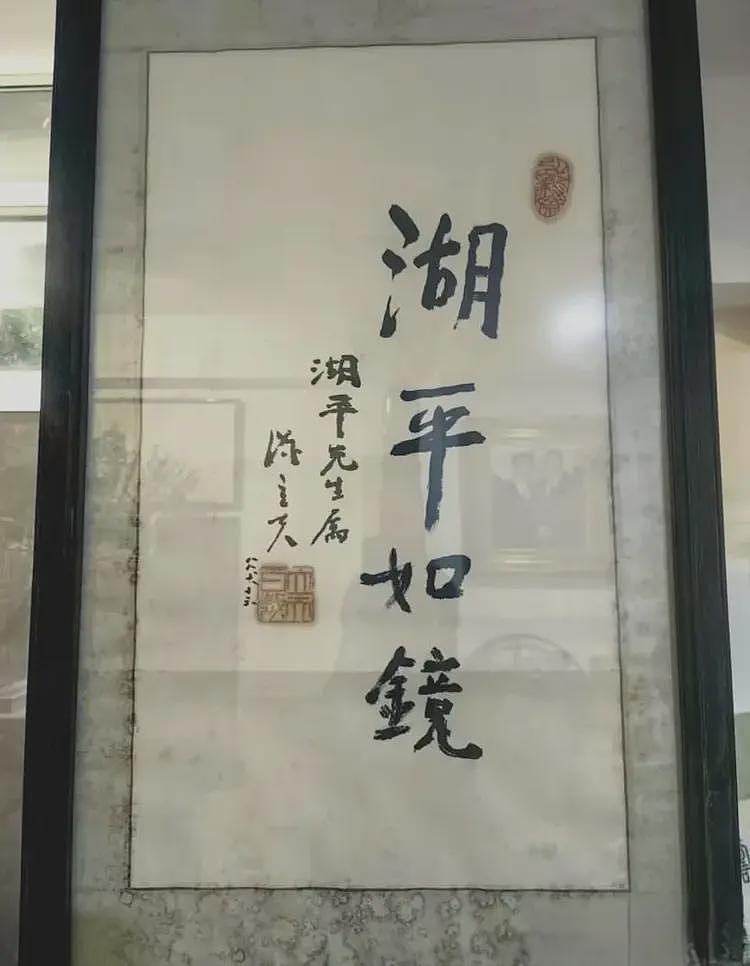 湖平如鏡
湖平先生属
陳立夫